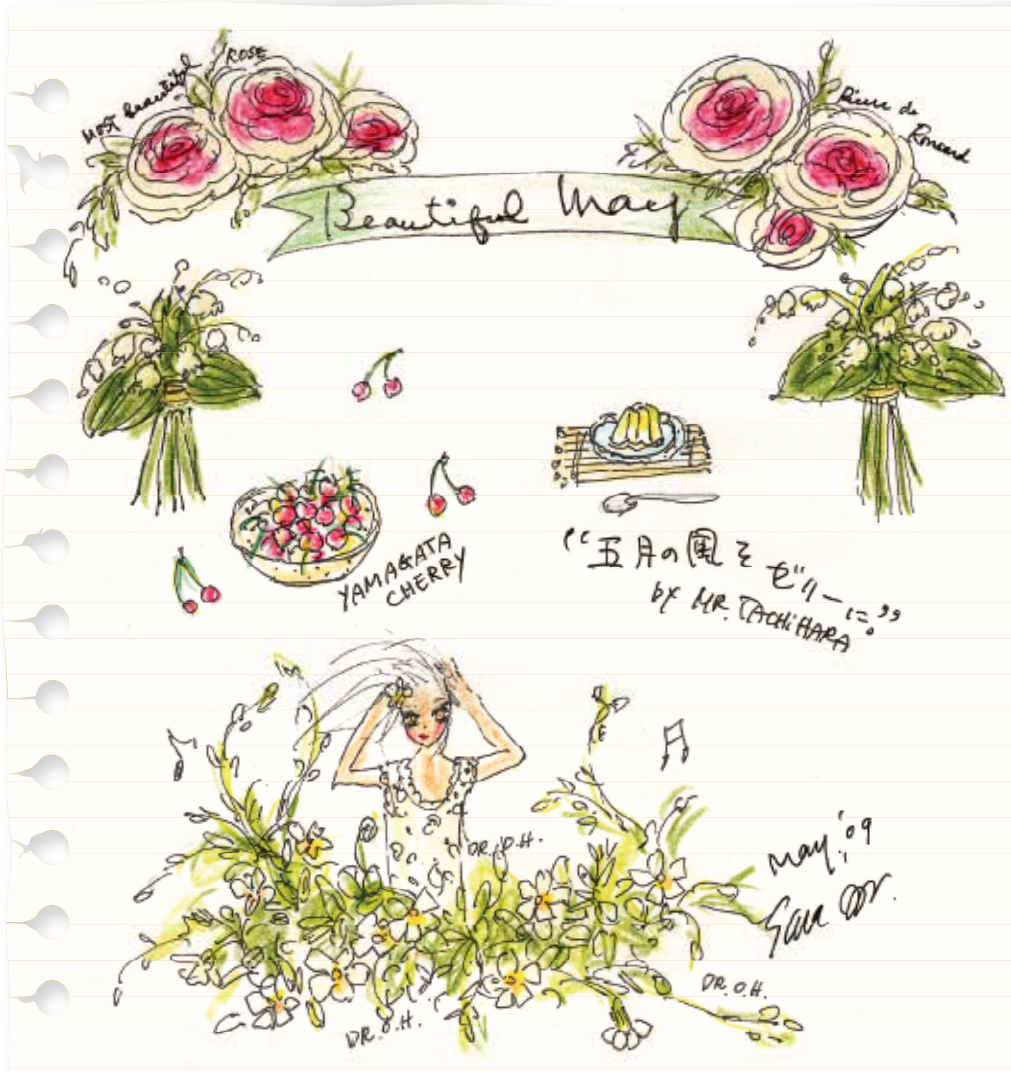 MOST Beautiful ROSE
Pierre de
Ronsard
Beautiful May
YAMAGATA
CHERRY
“五月の風を
ゼリーに”
by MR. TACHIHARA.
DR. O.H.
May. '09
DR. O.H.
DR. O.H.